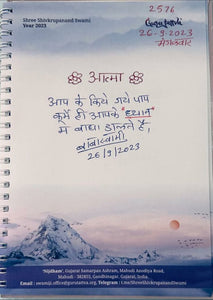 Shree Shivkrupanand Swami
Year 2023
2576
26-9-2023
मंगलवार
आत्मा
आप के किये गये पाप
कर्म ही आपके "ध्यान"
में बाधा डालते है,
बाबास्वामी
26/9/2023
'Nijdham', Gujarat Samarpan Ashram, Mahudi Amodiya Road,
Mahudi - 382855, Gandhinagar, Gujarat, India.
Email : swamiji.office@gurutattva.org, Telegram : t.me/ShreeShivkrupanandSwami